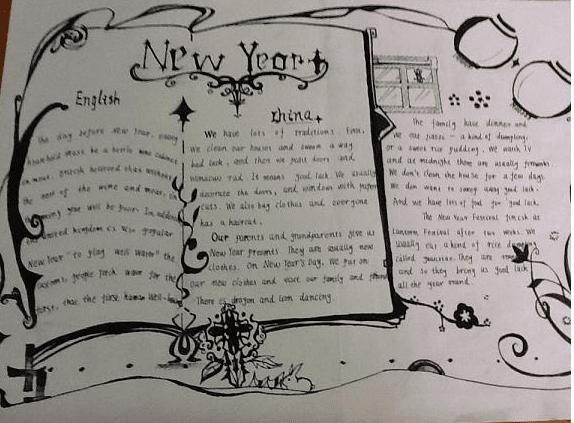 New Year
English
The day before new Year, every
household must be a bottle wine cabinet
in meat. British believed that without
the rest of the wine and meat, in
coming year will be poor. In addition
the united kingdom is also popular
New Year "to play well water" the
customs, people fetch water for the
first, that the first human well-
China
We have lots of traditions. First,
we clean our houses and sweep a way
bad luck, and then we paint doors and
windows red. It means good luck. We usually
decorate the doors, and windows with paper
cuts. We also buy clothes and everyone
has a haircut.
Our parents and grandparents give us
New Year presents. They are usually new
clothes. On New Year's Day, we put on
our new clothes and visit our family and
There is dragon and lion dancing.
The family have dinner and
we eat jiaozi - a kind of dumpling,
or a sweet rice pudding. We watch TV
and at midnight there are usually fireworks
We don't clean the house for a few days.
We don want to sweep away good luck.
And we have lots of food for good luck.
The New Year Festival finish at
Lantern Festival after two weeks. We
usually eat a kind of rice dumpling
called yuanxiao. They are
and so they bring us good luck
all the year round.